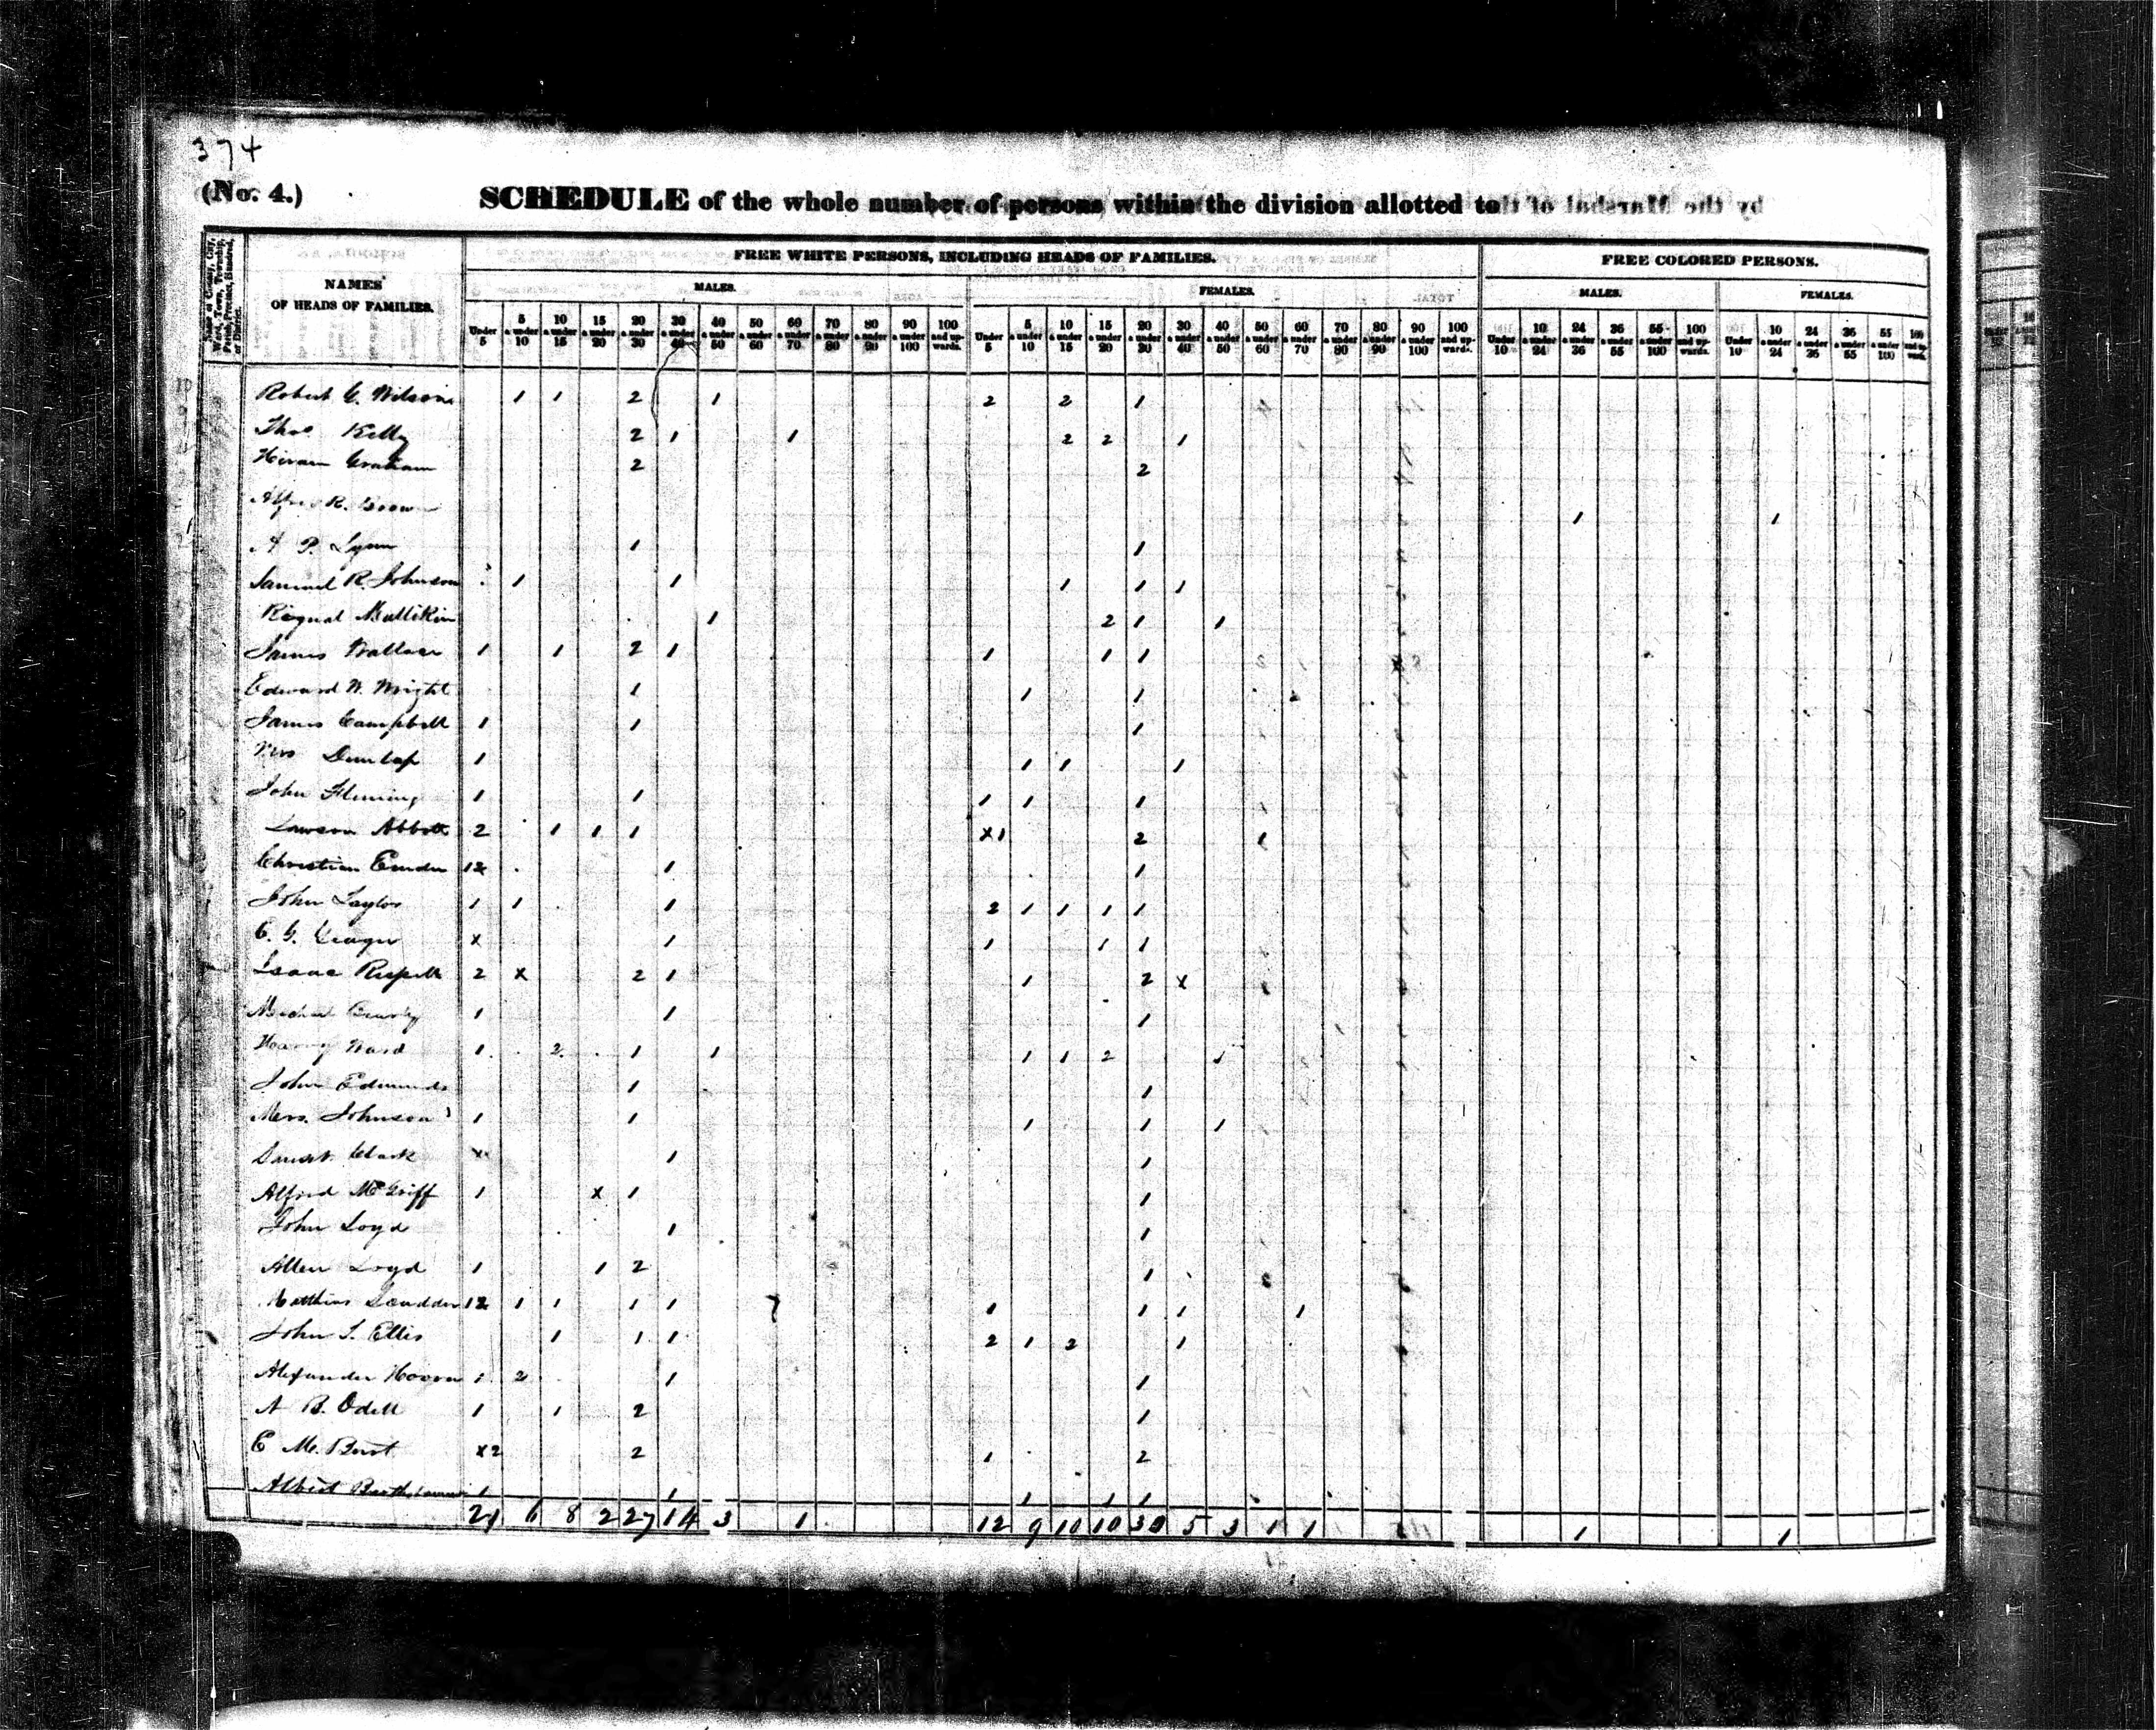 374
(No. 4.)
SCHEDULE of the whole number of persons within the division allotted to
Name of County, City, Ward, Town, Township, Parish, Precinct, Hundred, or District.
NAMES OF HEADS OF FAMILIES.
FREE WHITE PERSONS, INCLUDING HEADS OF FAMILIES.
FREE COLORED PERSONS.
MALES. FEMALES. MALES. FEMALES.
Under 5 | 5 & under 10 | 10 & under 15 | 15 & under 20 | 20 & under 30 | 30 & under 40 | 40 & under 50 | 50 & under 60 | 60 & under 70 | 70 & under 80 | 80 & under 90 | 90 & under 100 | 100 and upwards.
Under 5 | 5 & under 10 | 10 & under 15 | 15 & under 20 | 20 & under 30 | 30 & under 40 | 40 & under 50 | 50 & under 60 | 60 & under 70 | 70 & under 80 | 80 & under 90 | 90 & under 100 | 100 and upwards.
Under 10 | 10 & under 24 | 24 & under 36 | 36 & under 55 | 55 & under 100 | 100 and upwards.
Under 10 | 10 & under 24 | 24 & under 36 | 36 & under 55 | 55 & under 100 | 100 and upwards.
Robert C. Wilson 1 1 2 1 2 2 1
Thos Kelly 2 1 1 2 2 1
Hiram Graham 2 2
R. Brown 1 1
A P. Lynn 1 1
Samuel R. Johnson 1 1 1 1 1
Mullikin 1 2 1 1
James Wallace 1 1 2 1 1 1 1
Edward W. Wright 1 1 1
James Campbell 1 1 1
Mrs Dunlap 1 1 1 1
John Fleming 1 1 1 1 1
Lawson Abbott 2 1 1 1 x1 2 1
Christian 1 1
John Taylor 1 1 1 2 1 1 1 1
x 1 1 1 1
Isaac 2 x 2 1 1 2 x
1 1 1
Ward 1 2 1 1 1 1 2 1
John Edmunds 1 1
Mrs. Johnson 1 1 1 1 1
Clark x 1 1
Alfred McGriff 1 x 1 1
John Loyd 1 1
Allen Loyd 1 1 2 1
Scudder 1 1 1 1 1 1 1 1
John S. Ellis 1 1 1 2 1 2 1
Alexander 1 2 1 1
A B. Odell 1 1 2 1
E M. x2 2 1 2
Albert 1 1 1 1 1
21 6 8 2 27 14 3 1 12 9 10 10 30 5 3 1 1 1 1